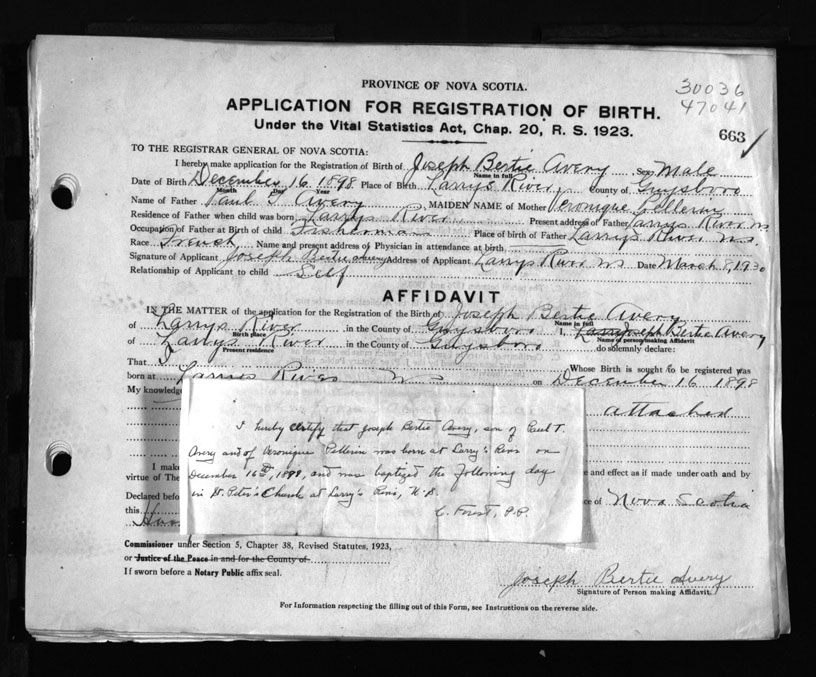 PROVINCE OF NOVA SCOTIA.
30036
47041
APPLICATION FOR REGISTRATION OF BIRTH.
Under the Vital Statistics Act, Chap. 20, R. S. 1923.
663
TO THE REGISTRAR GENERAL OF NOVA SCOTIA:
I hereby make application for the Registration of Birth of Joseph Bertie Avery Sex Male
Name in full
Date of Birth December 16 1898 Place of Birth Larrys River County of Guysboro
Month Day Year
Name of Father Paul T Avery MAIDEN NAME of Mother Veronique Pellerin
Residence of Father when child was born Larrys River Present address of Father Larrys River NS
Occupation of Father at Birth of child Fisherman Place of birth of Father Larrys River N.S.
Race French Name and present address of Physician in attendance at birth
Signature of Applicant Joseph Bertie Avery Address of Applicant Larrys River NS Date March 8, 1930
Relationship of Applicant to child Self
AFFIDAVIT
IN THE MATTER of the application for the Registration of the Birth of Joseph Bertie Avery
Name in full
of Larrys River in the County of Guysboro I, Joseph Bertie Avery
Birth place Name of person making Affidavit
of Larrys River in the County of Guysboro do solemnly declare:
Present residence
That I Whose Birth is sought to be registered was
born at Larrys River NS on December 16 1898
My knowledge attached
I hereby certify that Joseph Bertie Avery, son of Paul T.
Avery and of Veronique Pellerin was born at Larry's River on
December 16th, 1898, and was baptized the following day
in St. Peter's Church at Larry's River, N.S.
C. Forest, P.P.
I make and effect as if made under oath and by
virtue of The
Declared before of Nova Scotia
this
Commissioner under Section 5, Chapter 38, Revised Statutes, 1923,
or Justice of the Peace in and for the County of
If sworn before a Notary Public affix seal.
Joseph Bertie Avery
Signature of Person making Affidavit.
For Information respecting the filling out of this Form, see Instructions on the reverse side.